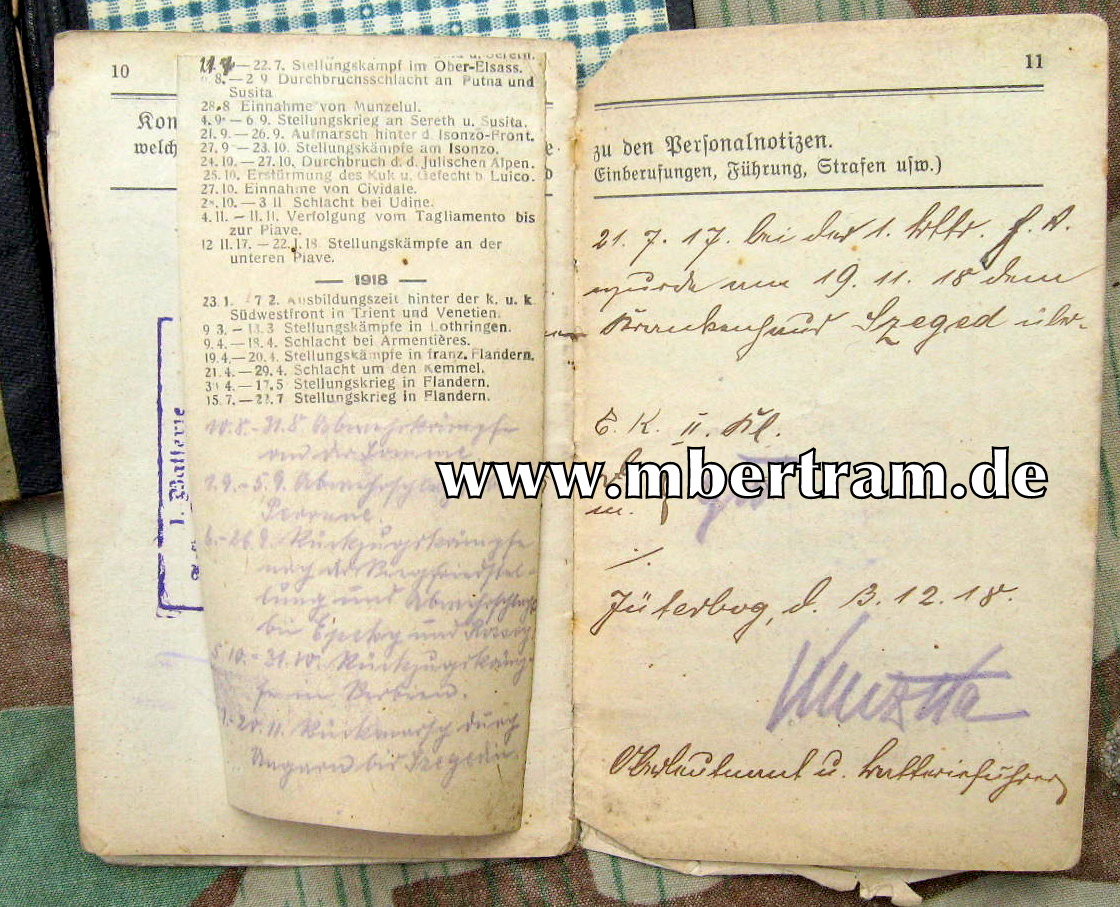 10
Kon
welch
—22.7. Stellungskampf im Ober-Elsass.
8.—2 9 Durchbruchsschlacht an Putna und
Susita
28.8 Einnahme von Munzelul.
4.9.—6.9. Stellungskrieg an Sereth u. Susita.
21.9.—26.9. Aufmarsch hinter d. Isonzo-Front.
27.9—23.10. Stellungskämpfe am Isonzo.
24.10.—27.10. Durchbruch d. d. Julischen Alpen.
25.10. Erstürmung des Kuk u. Gefecht b Luico.
27.10. Einnahme von Cividale.
2 .10.—3 11 Schlacht bei Udine.
4.11.—11.11. Verfolgung vom Tagliamento bis
zur Piave.
12 11.17.—22.1.18. Stellungskämpfe an der
unteren Piave.
— 1918 —
23.1. 7 2. Ausbildungszeit hinter der k. u. k.
Südwestfront in Trient und Venetien.
9 3.—13.3 Stellungskämpfe in Lothringen.
9.4.—18.4. Schlacht bei Armentières.
19.4.—20.4. Stellungskämpfe in franz. Flandern.
21.4.—29.4. Schlacht um den Kemmel.
30 4.—17.5 Stellungskrieg in Flandern.
15.7.—23.7 Stellungskrieg in Flandern.
10.8.-31.8. Abwehrkämpfe
an der Somme.
1.9.-5.9. Abwehrschla
Peronne.
6.-26.9. Rückzugskämpfe
nach der Siegfriedstel-
lung und Abwehrschlacht
bei und
5.10.-31.10. Rückzugskämp-
fe in Serbien.
1.-20.11. Rückmarsch durch
Ungarn bis Szegedin.
1. Batterie
11
zu den Personalnotizen.
Einberufungen, Führung, Strafen usw.)
21. 7. 17. bei der 1. Battr. F. A.
wurde am 19. 11. 18 dem
Krankenhaus Szeged über-
E. K. II. Kl.
www.mbertram.de
Jüterbog, d. 13. 12. 18.
Oberleutnant u. Batterieführer